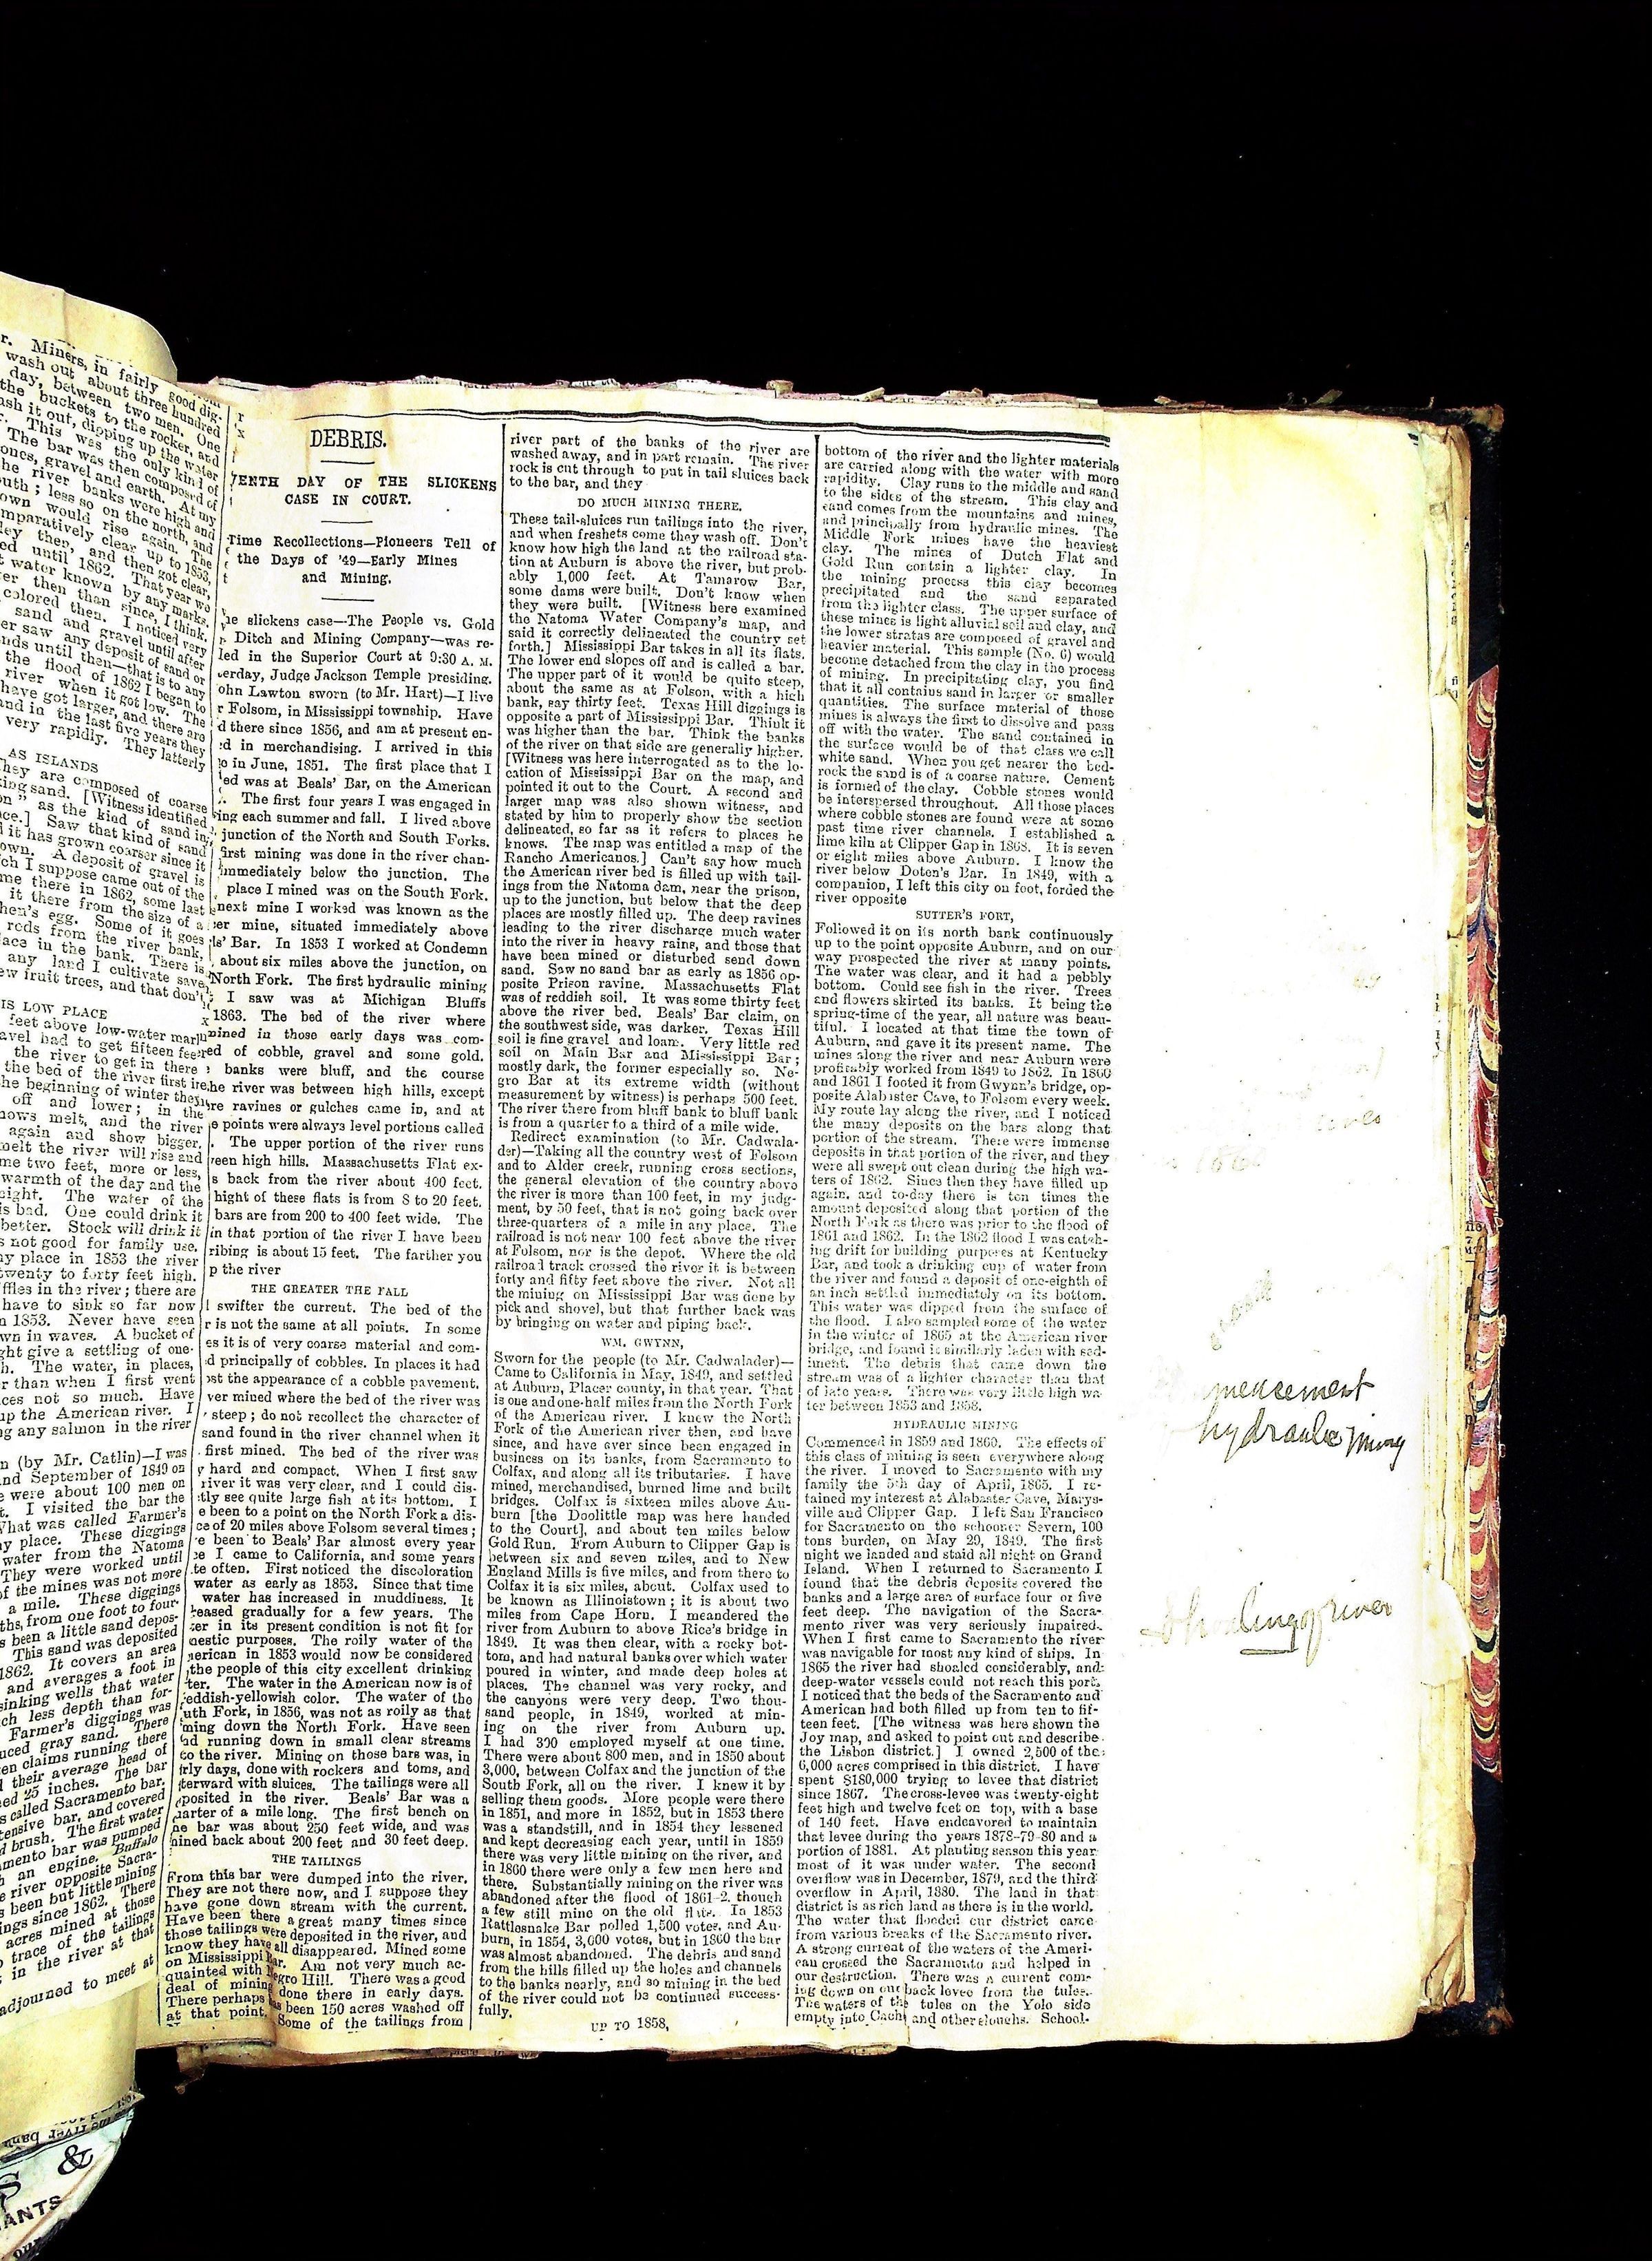 r. Miners, in fairly good dig-
wash out about three hundred
day, between two men. One
the buckets to the rocker, and
ash it out, dipping up the water
This was the only kind of
The bar was then composed of
ones, gravel and earth. At my
he river banks were high and
uth; less so on the north, and
own would rise again. The
mparatively clear up to 1853,
ley then, and then got clear,
ed until 1862. That year we
t water known by any marks.
er then than since, I think.
colored then. I noticed very
sand and gravel until after
er saw any deposit of sand or
nds until then—that is to any
the flood of 1862 I began to
river when it got low. The
have got larger, and there are
and in the last five years they
very rapidly. They latterly
AS ISLANDS
They are composed of coarse
king sand. [Witness identified
on " as the kind of sand in
ace.] Saw that kind of sand
d it has grown coarser since it
own. A deposit of gravel is
ch I suppose came out of the
me there in 1862, some last
it there from the size of a
hen's egg. Some of it goes
rods from the river bank,
ace in the bank. There is
any land I cultivate save
ew fruit trees, and that don't
IS LOW PLACE
feet above low-water mark
avel had to get fifteen feet
the river to get in there
the bed of the river first
he beginning of winter they
off and lower; in the
nows melt, and the river
again and show bigger.
melt the river will rise and
me two feet, more or less,
warmth of the day and the
eight. The water of the
is bad. One could drink it
better. Stock will drink it
s not good for family use.
ny place in 1853 the river
twenty to forty feet high.
ffles in the river; there are
have to sink so far now
n 1853. Never have seen
wn in waves. A bucket of
ght give a settling of one-
h. The water, in places,
r than when I first went
ces not so much. Have
up the American river. I
ng any salmon in the river
n (by Mr. Catlin)—I was
and September of 1849 on
e were about 100 men on
t. I visited the bar the
What was called Farmer's
ny place. These diggings
water from the Natoma
They were worked until
of the mines was not more
a mile. These diggings
ths, from one foot to four.
s been a little sand depos-
This sand was deposited
1862. It covers an area
and averages a foot in
sinking wells that water
ch less depth than for-
Farmer's diggings was
uced gray sand. There
en claims running there
d their average head of
ned 25 inches. The bar
s called Sacramento bar.
tensive bar, and covered
d brush. The first water
mento bar was pumped
h an engine. Buffalo
e river opposite Sacra-
s been but little mining
ings since 1862. There
acres mined at those
trace of the tailings
in the river at that
adjourned to meet at
DEBRIS.
TENTH DAY OF THE SLICKENS
CASE IN COURT.
-Time Recollections—Pioneers Tell of
the Days of '49—Early Mines
and Mining.
he slickens case—The People vs. Gold
Ditch and Mining Company—was re-
led in the Superior Court at 9:30 A. M.
erday, Judge Jackson Temple presiding.
ohn Lawton sworn (to Mr. Hart)—I live
r Folsom, in Mississippi township. Have
d there since 1856, and am at present en-
ed in merchandising. I arrived in this
e in June, 1851. The first place that I
ed was at Beals' Bar, on the American
. The first four years I was engaged in
ing each summer and fall. I lived above
junction of the North and South Forks.
first mining was done in the river chan-
immediately below the junction. The
place I mined was on the South Fork.
next mine I worked was known as the
er mine, situated immediately above
ls' Bar. In 1853 I worked at Condemn
about six miles above the junction, on
North Fork. The first hydraulic mining
I saw was at Michigan Bluffs
1863. The bed of the river where
mined in those early days was com-
ed of cobble, gravel and some gold.
banks were bluff, and the course
he river was between high hills, except
re ravines or gulches came in, and at
e points were always level portions called
. The upper portion of the river runs
veen high hills. Massachusetts Flat ex-
s back from the river about 400 feet.
hight of these flats is from 8 to 20 feet.
bars are from 200 to 400 feet wide. The
in that portion of the river I have been
ribing is about 15 feet. The farther you
p the river
THE GREATER THE FALL
l swifter the current. The bed of the
r is not the same at all points. In some
es it is of very coarse material and com-
d principally of cobbles. In places it had
ost the appearance of a cobble pavement.
ver mined where the bed of the river was
steep; do not recollect the character of
sand found in the river channel when it
first mined. The bed of the river was
y hard and compact. When I first saw
river it was very clear, and I could dis-
tly see quite large fish at its bottom. I
e been to a point on the North Fork a dis-
ce of 20 miles above Folsom several times;
e been to Beals' Bar almost every year
ce I came to California, and some years
te often. First noticed the discoloration
water as early as 1853. Since that time
water has increased in muddiness. It
eased gradually for a few years. The
er in its present condition is not fit for
nestic purposes. The roily water of the
nerican in 1853 would now be considered
the people of this city excellent drinking
ter. The water in the American now is of
eddish-yellowish color. The water of the
uth Fork, in 1856, was not as roily as that
ming down the North Fork. Have seen
nd running down in small clear streams
to the river. Mining on those bars was, in
rly days, done with rockers and toms, and
terward with sluices. The tailings were all
posited in the river. Beals' Bar was a
uarter of a mile long. The first bench on
he bar was about 250 feet wide, and was
nined back about 200 feet and 30 feet deep.
THE TAILINGS
From this bar were dumped into the river.
They are not there now, and I suppose they
have gone down stream with the current.
Have been there a great many times since
those tailings were deposited in the river, and
know they have all disappeared. Mined some
on Mississippi Bar. Am not very much ac-
quainted with Negro Hill. There was a good
deal of mining done there in early days.
There perhaps has been 150 acres washed off
at that point. Some of the tailings from
river part of the banks of the river are
washed away, and in part remain. The river
rock is cut through to put in tail sluices back
to the bar, and they
DO MUCH MINING THERE.
These tail-sluices run tailings into the river,
and when freshets come they wash off. Don't
know how high the land at the railroad sta-
tion at Auburn is above the river, but prob-
ably 1,000 feet. At Tamarow Bar,
some dams were built. Don't know when
they were built. [Witness here examined
the Natoma Water Company's map, and
said it correctly delineated the country set
forth.] Mississippi Bar takes in all its flats.
The lower end slopes off and is called a bar.
The upper part of it would be quite steep,
about the same as at Folson, with a high
bank, say thirty feet. Texas Hill diggings is
opposite a part of Mississippi Bar. Think it
was higher than the bar. Think the banks
of the river on that side are generally higher.
[Witness was here interrogated as to the lo-
cation of Mississippi Bar on the map, and
pointed it out to the Court. A second and
larger map was also shown witness, and
stated by him to properly show the section
delineated, so far as it refers to places he
knows. The map was entitled a map of the
Rancho Americanos.] Can't say how much
the American river bed is filled up with tail-
ings from the Natoma dam, near the prison,
up to the junction, but below that the deep
places are mostly filled up. The deep ravines
leading to the river discharge much water
into the river in heavy rains, and those that
have been mined or disturbed send down
sand. Saw no sand bar as early as 1856 op-
posite Prison ravine. Massachusetts Flat
was of reddish soil. It was some thirty feet
above the river bed. Beals' Bar claim, on
the southwest side, was darker. Texas Hill
soil is fine gravel and loam. Very little red
soil on Main Bar and Mississippi Bar;
mostly dark, the former especially so. Ne-
gro Bar at its extreme width (without
measurement by witness) is perhaps 500 feet.
The river there from bluff bank to bluff bank
is from a quarter to a third of a mile wide.
Redirect examination (to Mr. Cadwala-
der)—Taking all the country west of Folsom
and to Alder creek, running cross sections,
the general elevation of the country above
the river is more than 100 feet, in my judg-
ment, by 50 feet, that is not going back over
three-quarters of a mile in any place. The
railroad is not near 100 feet above the river
at Folsom, nor is the depot. Where the old
railroad track crossed the river it is between
forty and fifty feet above the river. Not all
the mining on Mississippi Bar was done by
pick and shovel, but that further back was
by bringing on water and piping back.
WM. GWYNN,
Sworn for the people (to Mr. Cadwalader)—
Came to California in May, 1849, and settled
at Auburn, Placer county, in that year. That
is one and one-half miles from the North Fork
of the American river. I knew the North
Fork of the American river then, and have
since, and have ever since been engaged in
business on its banks, from Sacramento to
Colfax, and along all its tributaries. I have
mined, merchandised, burned lime and built
bridges. Colfax is sixteen miles above Au-
burn [the Doolittle map was here handed
to the Court], and about ten miles below
Gold Run. From Auburn to Clipper Gap is
between six and seven miles, and to New
England Mills is five miles, and from there to
Colfax it is six miles, about. Colfax used to
be known as Illinoistown; it is about two
miles from Cape Horn. I meandered the
river from Auburn to above Rice's bridge in
1849. It was then clear, with a rocky bot-
tom, and had natural banks over which water
poured in winter, and made deep holes at
places. The channel was very rocky, and
the canyons were very deep. Two thou-
sand people, in 1849, worked at min-
ing on the river from Auburn up.
I had 300 employed myself at one time.
There were about 800 men, and in 1850 about
3,000, between Colfax and the junction of the
South Fork, all on the river. I knew it by
selling them goods. More people were there
in 1851, and more in 1852, but in 1853 there
was a standstill, and in 1854 they lessened
and kept decreasing each year, until in 1859
there was very little mining on the river, and
in 1860 there were only a few men here and
there. Substantially mining on the river was
abandoned after the flood of 1861-2, though
a few still mine on the old flats. In 1853
Rattlesnake Bar polled 1,500 votes, and Au-
burn, in 1854, 3,000 votes, but in 1860 the bar
was almost abandoned. The debris and sand
from the hills filled up the holes and channels
to the banks nearly, and so mining in the bed
of the river could not be continued success-
fully.
UP TO 1858,
bottom of the river and the lighter materials
are carried along with the water with more
rapidity. Clay runs to the middle and sand
to the sides of the stream. This clay and
sand comes from the mountains and mines,
and principally from hydraulic mines. The
Middle Fork mines have the heaviest
clay. The mines of Dutch Flat and
Gold Run contain a lighter clay. In
the mining process this clay becomes
precipitated and the sand separated
from the lighter class. The upper surface of
these mines is light alluvial soil and clay, and
the lower stratas are composed of gravel and
heavier material. This sample (No. 6) would
become detached from the clay in the process
of mining. In precipitating clay, you find
that it all contains sand in larger or smaller
quantities. The surface material of those
mines is always the first to dissolve and pass
off with the water. The sand contained in
the surface would be of that class we call
white sand. When you get nearer the bed-
rock the sand is of a coarse nature. Cement
is formed of the clay. Cobble stones would
be interspersed throughout. All those places
where cobble stones are found were at some
past time river channels. I established a
lime kiln at Clipper Gap in 1868. It is seven
or eight miles above Auburn. I know the
river below Doten's Bar. In 1849, with a
companion, I left this city on foot, forded the
river opposite
SUTTER'S FORT,
Followed it on its north bank continuously
up to the point opposite Auburn, and on our
way prospected the river at many points.
The water was clear, and it had a pebbly
bottom. Could see fish in the river. Trees
and flowers skirted its banks. It being the
spring-time of the year, all nature was beau-
tiful. I located at that time the town of
Auburn, and gave it its present name. The
mines along the river and near Auburn were
profitably worked from 1849 to 1862. In 1860
and 1861 I footed it from Gwynn's bridge, op-
posite Alabaster Cave, to Folsom every week.
My route lay along the river, and I noticed
the many deposits on the bars along that
portion of the stream. There were immense
deposits in that portion of the river, and they
were all swept out clean during the high wa-
ters of 1862. Since then they have filled up
again, and to-day there is ten times the
amount deposited along that portion of the
North Fork as there was prior to the flood of
1861 and 1862. In the 1862 flood I was catch-
ing drift for building purposes at Kentucky
Bar, and took a drinking cup of water from
the river and found a deposit of one-eighth of
an inch settled immediately on its bottom.
This water was dipped from the surface of
the flood. I also sampled some of the water
in the winter of 1865 at the American river
bridge, and found is similarly laden with sed-
iment. The debris that came down the
stream was of a lighter character than that
of late years. There was very little high wa-
ter between 1853 and 1858.
HYDRAULIC MINING
Commenced in 1859 and 1860. The effects of
this class of mining is seen everywhere along
the river. I moved to Sacramento with my
family the 5th day of April, 1865. I re-
tained my interest at Alabaster Cave, Marys-
ville and Clipper Gap. I left San Francisco
for Sacramento on the schooner Severn, 100
tons burden, on May 29, 1849. The first
night we landed and staid all night on Grand
Island. When I returned to Sacramento I
found that the debris deposits covered the
banks and a large area of surface four or five
feet deep. The navigation of the Sacra-
mento river was very seriously impaired.
When I first came to Sacramento the river
was navigable for most any kind of ships. In
1865 the river had shoaled considerably, and
deep-water vessels could not reach this port.
I noticed that the beds of the Sacramento and
American had both filled up from ten to fif-
teen feet. [The witness was here shown the
Joy map, and asked to point out and describe
the Lisbon district.] I owned 2,500 of the
6,000 acres comprised in this district. I have
spent $180,000 trying to levee that district
since 1867. The cross-levee was twenty-eight
feet high and twelve feet on top, with a base
of 140 feet. Have endeavored to maintain
that levee during the years 1878-79-80 and a
portion of 1881. At planting season this year
most of it was under water. The second
overflow was in December, 1879, and the third
overflow in April, 1880. The land in that
district is as rich land as there is in the world.
The water that flooded our district came
from various breaks of the Sacramento river.
A strong current of the waters of the Ameri-
can crossed the Sacramento and helped in
our destruction. There was a current com-
ing down on our back levee from the tules.
The waters of the tules on the Yolo side
empty into Cach and other sloughs. School-
1860
mencement
hydraulic Mining
Shoaling of river
river ban
S &
ANTS